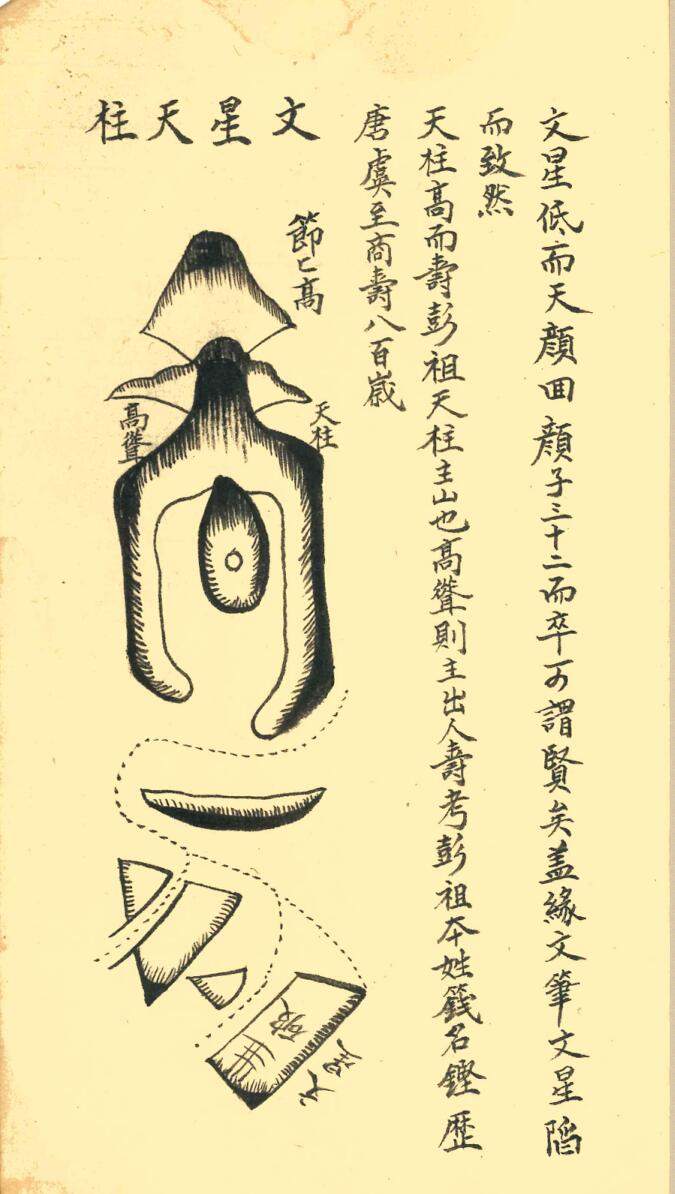 文星低而夭顏囬顏子三十二而卒可謂賢矣盖緣文筆文星陷
而致然
天柱高而壽彭祖天柱主山也高聳則主出人壽考彭祖本姓籛名鏗歷
唐虞至商壽八百歲
文星天柱
節匕高
天柱
高聳
文星